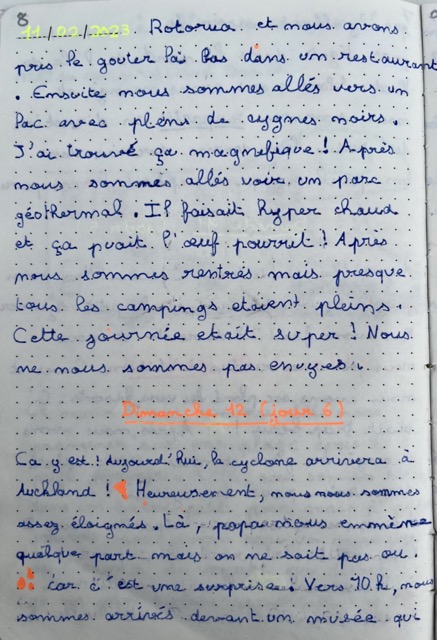 8
11/02/2023 Rotorua et nous avons
pris le gouter là bas dans un restaurant
. Ensuite nous sommes allés vers un
lac avec pleins de cygnes noirs.
J'ai trouvé ça magnefique ! Après
nous sommes allés voir un parc
géothermal. Il faisait hyper chaud
et ça puait l'œuf pourrit ! Apres
nous sommes rentrés mais presque
tous les campings etaient pleins.
Cette journée etait super ! Nous
ne nous sommes pas enuyes.
Dimanche 12 (jour 6)
Ca y est ! Aujourd'hui, le cyclone arrivera à
Auckland ! Heureusement, nous nous sommes
assez éloignés. Là, papa nous emmène
quelque part mais on ne sait pas ou.
car c'est une surprise ! Vers 10 h, nous
sommes arrivés devant un musée qui